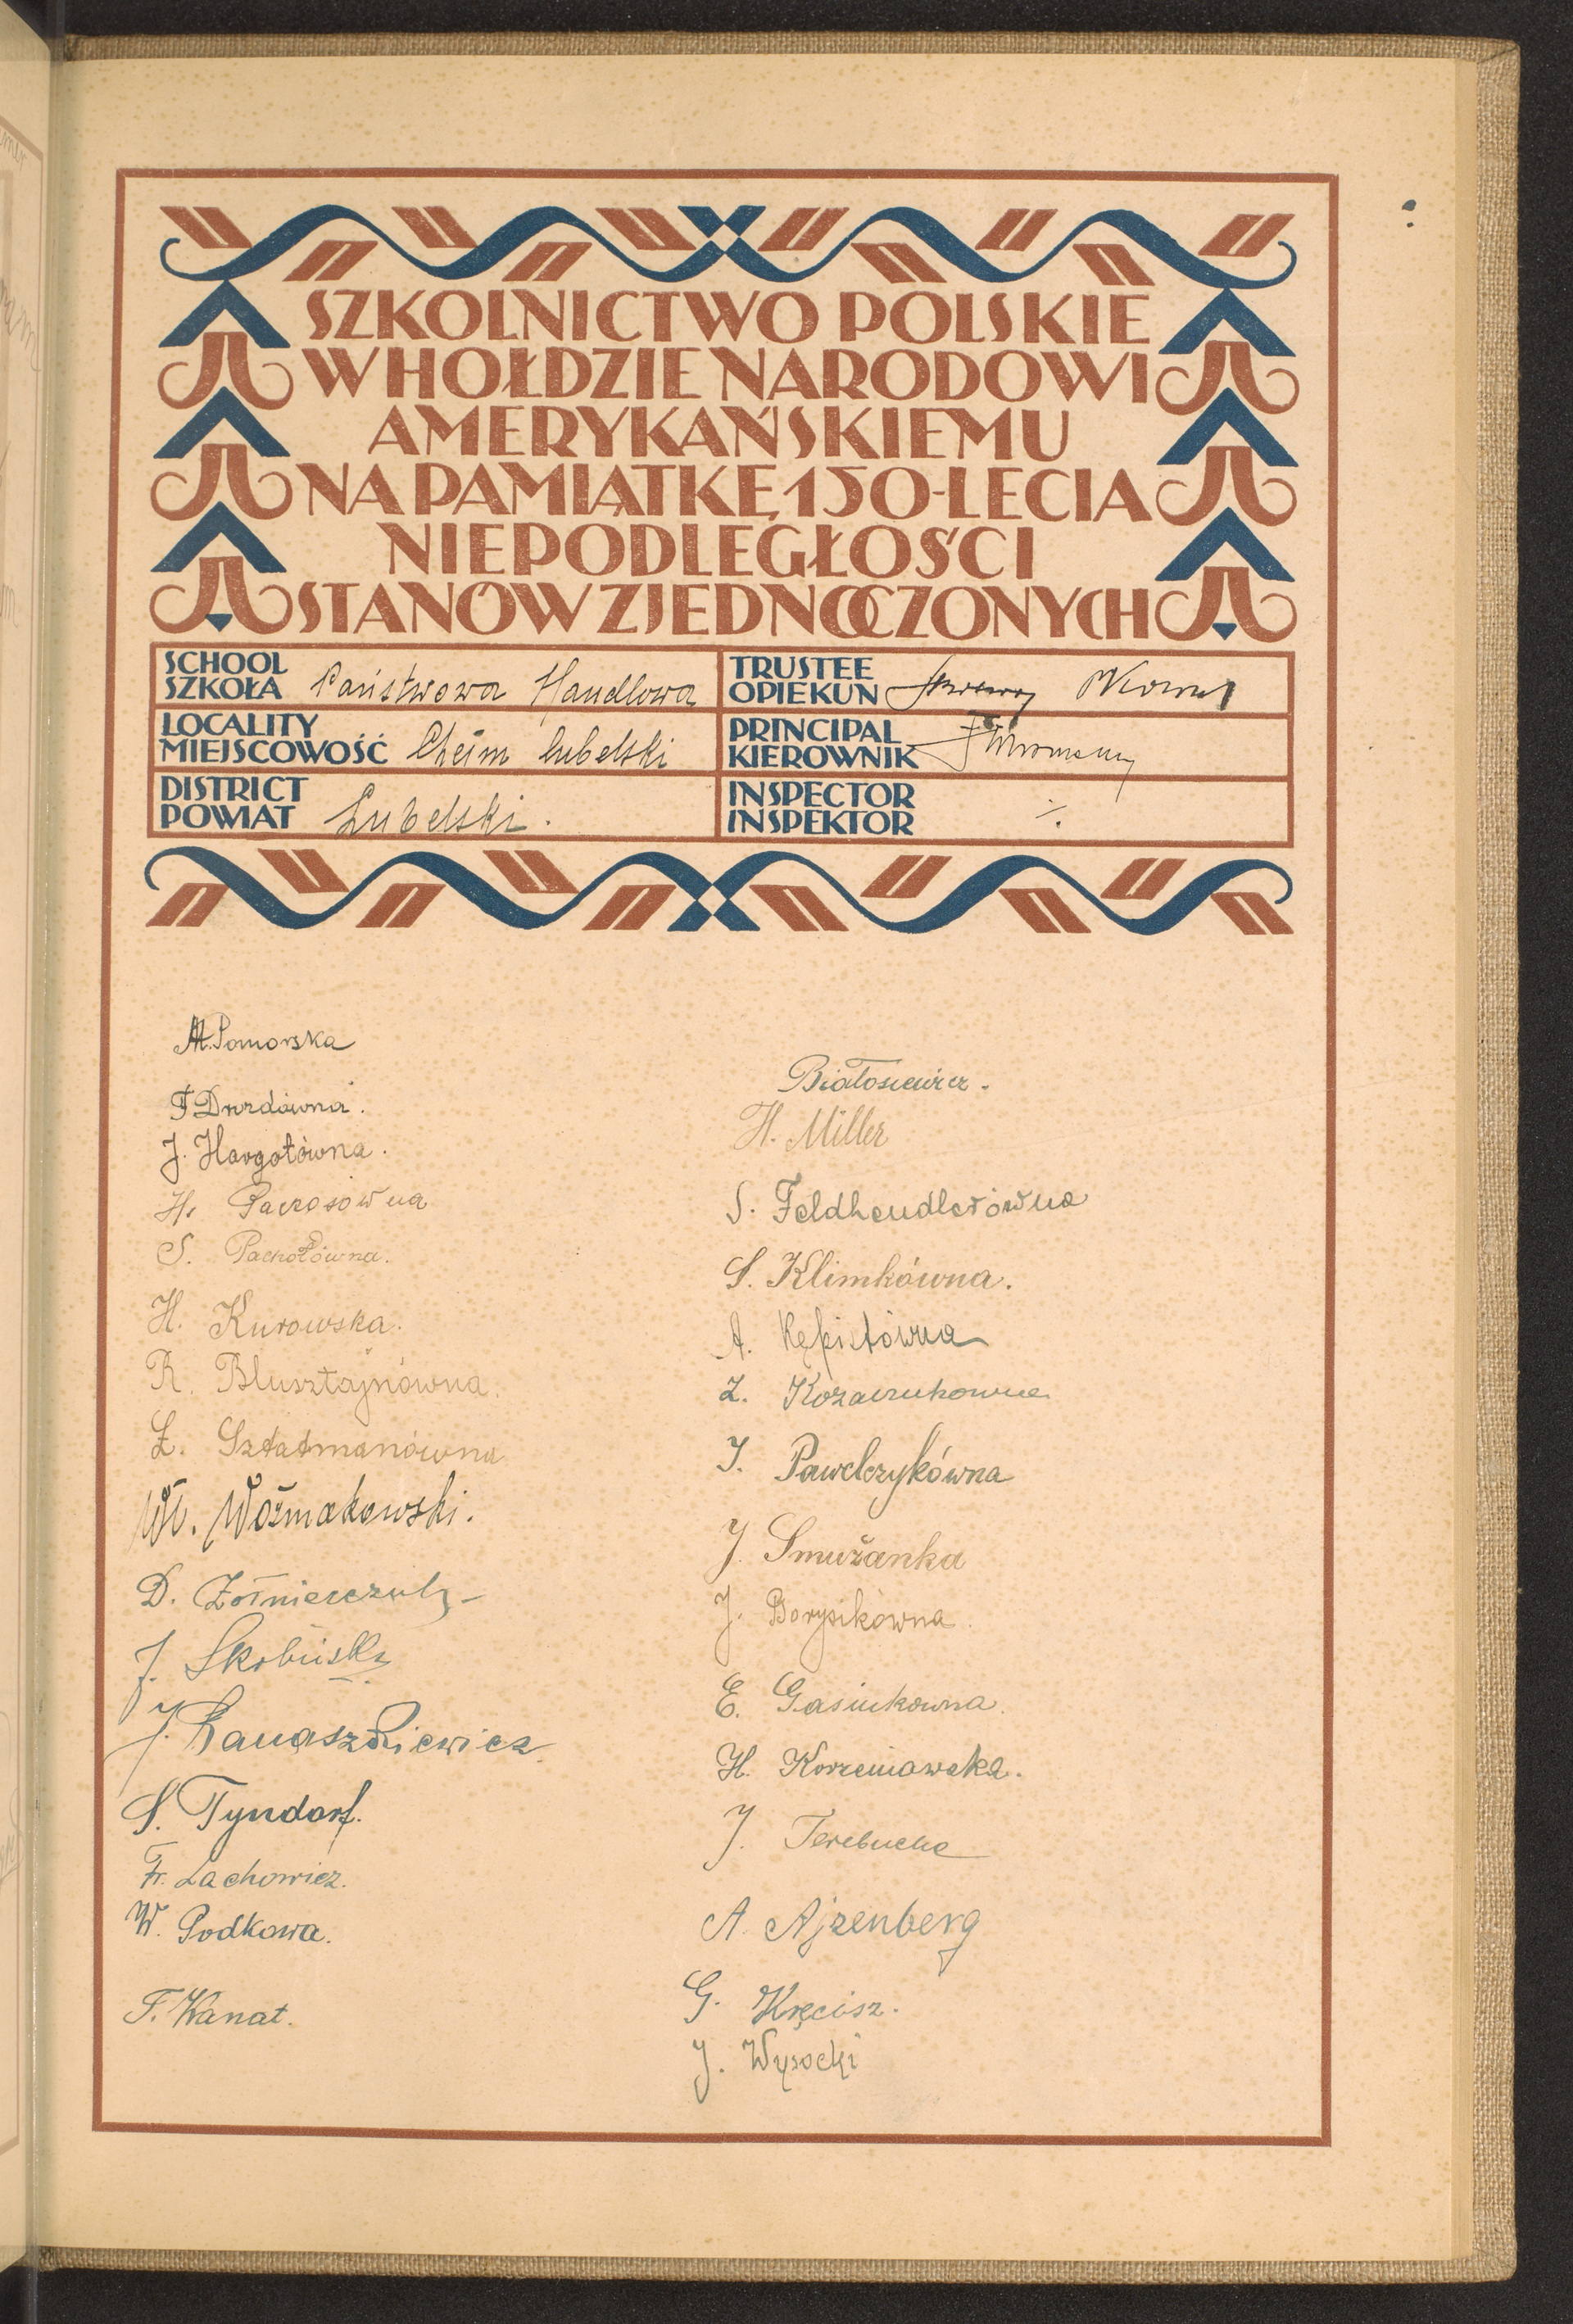 SZKOLNICTWO POLSKIE
W HOŁDZIE NARODOWI
AMERYKAŃSKIEMU
NA PAMIĄTKĘ 150-LECIA
NIEPODLEGŁOŚCI
STANÓW ZJEDNOCZONYCH
SCHOOL
SZKOŁA Państwowa Handlowa
TRUSTEE
OPIEKUN
LOCALITY
MIEJSCOWOŚĆ Chełm Lubelski
PRINCIPAL
KIEROWNIK
DISTRICT
POWIAT Lubelski.
INSPECTOR
INSPEKTOR
M. Pomorska
F Drozdówna.
J. Hargotówna.
H. Paczosówna
S. Pachołówna.
H. Kurowska.
R. Blusztajnówna.
Ł. Sztatmanówna
Wł. Woźniakowski.
D. Żołnierczuk
J. Skibiński
J. Banaszkiewicz
S. Tyndorf.
Fr. Lachowicz.
W. Podkowa.
F. Kanat.
Białosiewicz.
H. Miller
S. Feldhendlerówna
S. Klimkówna.
A. Kępistówna
Z. Kozaczukowna
J. Pawelczykówna
J. Smużanka
J. Borysikówna.
E. Gasiukowna.
H. Korzeniowska.
J. Terebucha
A. Ajzenberg
G. Kręcisz.
J. Wysocki